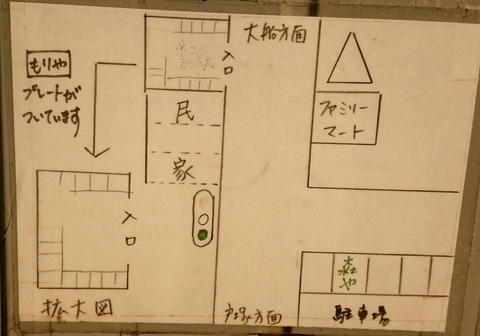 大船方面
もりや
プレートが
ついています
入
口
民
家
ファミリー
マート
入
口
拡大図
戸塚方面
森
や
駐車場